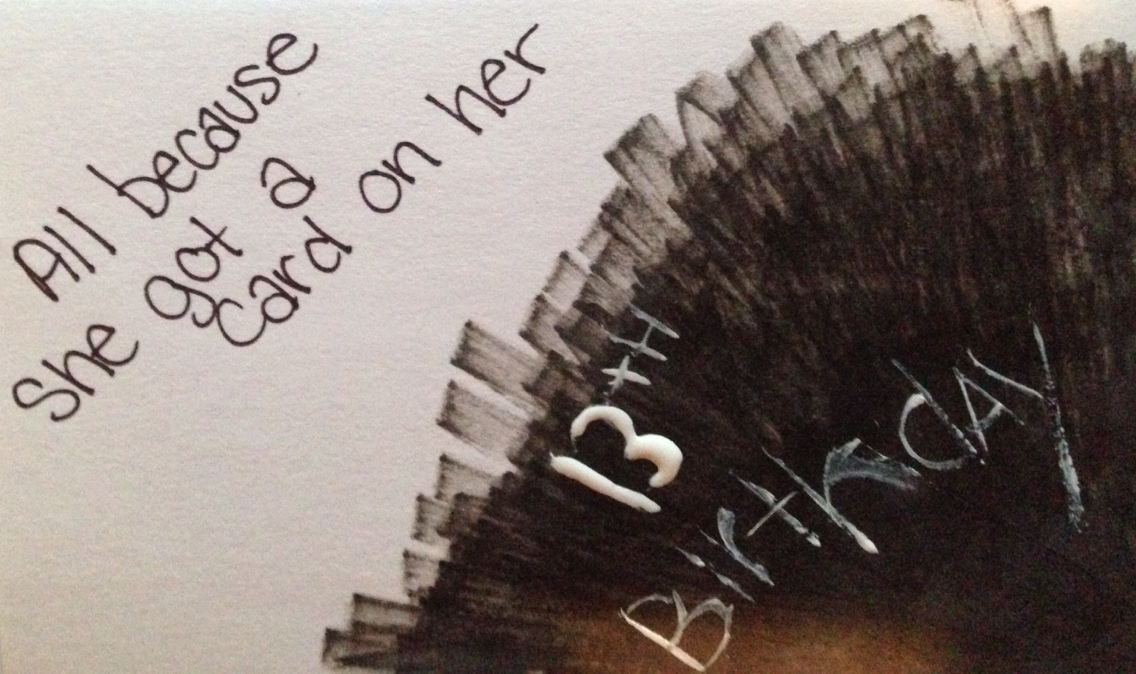 All because
She got a
card on her
13tH
BirthdAy